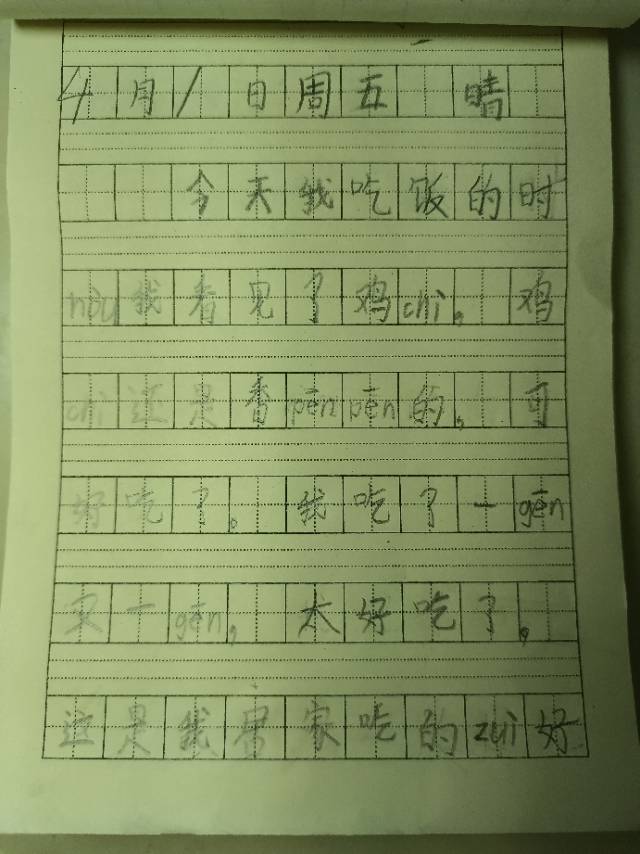 4月1日周五 晴
今天我吃饭的时
hòu我看见了鸡chì。鸡
chì还是香pēn pēn的。可
好吃了。我吃了一gēn
又一gēn,太好吃了。
这是我 家吃的zuì好